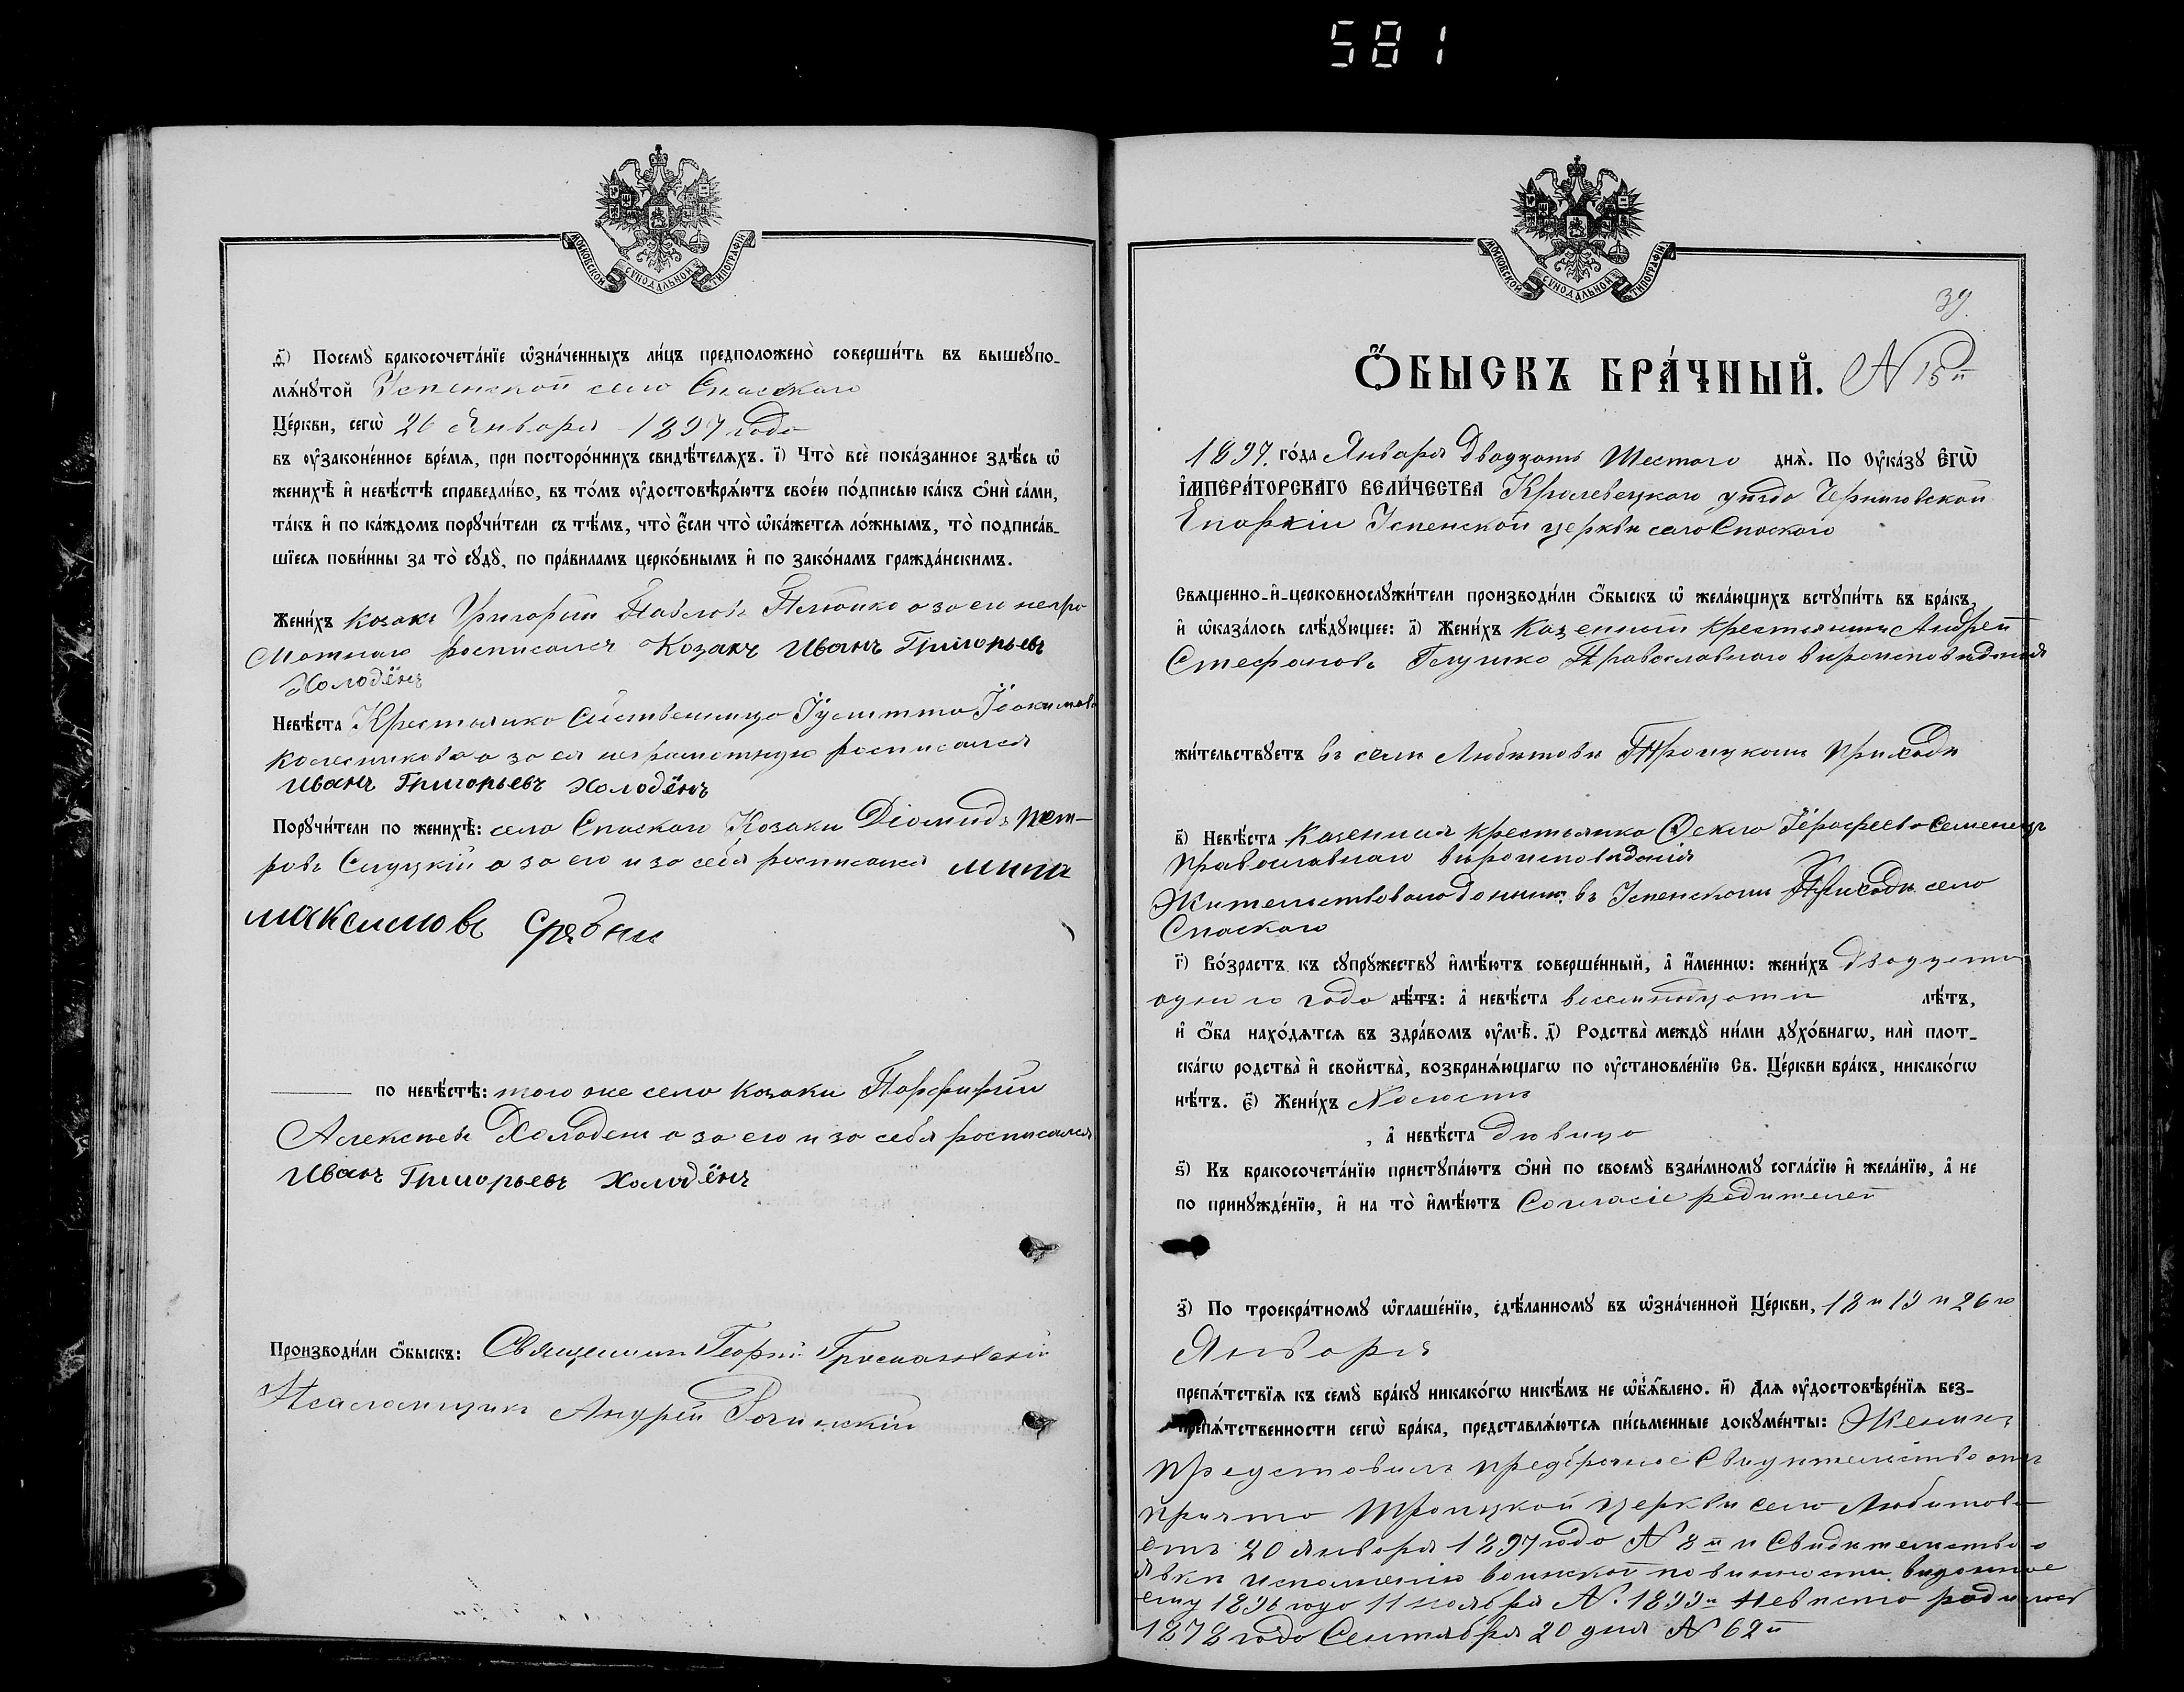 581
МОСКОВСКОЙ СѴНОДАЛЬНОЙ ТИПОГРАФІИ
д҃і) Посемꙋ̀ бракосочета́нїе ѡ҆зна́ченныхъ ли́цъ предположено̀ соверши́ть въ вышеꙋпо-
мѧ́нꙋтой Успенской села Спаского
Це́ркви, сегѡ̀ 26 Января 1897 года
въ ᲂу҆законе́нное вре́мѧ, при посторо́ннихъ свидѣ́телѧхъ. і҃) Что̀ всѐ пока́занное здѣ́сь ѡ҆
женихѣ̀ и҆ невѣ́стѣ справедли́во, въ то́мъ ᲂу҆достовѣрѧ́ютъ свое́ю по́дписью ка́къ ѻ҆нѝ са́ми,
та́къ и҆ по ка́ждомъ порꙋчи́тели съ тѣ́мъ, что̀ є҆́сли что̀ ѡ҆ка́жетсѧ ло́жнымъ, то̀ подписа́в-
шїесѧ пови́нны за то̀ сꙋдꙋ̀, по пра́виламъ церко́внымъ и҆ по зако́намъ гражда́нскимъ.
Жени́хъ козакъ Григорий Павловъ а за его негра
мотнаго росписался Козакъ Иванъ Григорьевъ
Холодёнъ
Невѣ́ста Крестьянка Іустина Іоакимова
Колесникова а за ея неграмотную росписался
Иванъ Григорьевъ Холодёнъ
Порꙋчи́тели по женихѣ̀: села Спаского Козаки Діомидъ Пет-
ровъ Слуцкій а за его и за себя росписался мина
максимовъ
по невѣ́стѣ: того же села козаки Порфирій
Алексѣевъ Холоденъ а за его и за себя росписался
Иванъ Григорьевъ Холодёнъ
Производи́ли ѻ҆́быскъ: Священникъ Георгій
Псаломщикъ Андрей
МОСКОВСКОЙ СѴНОДАЛЬНОЙ ТИПОГРАФІИ
39.
Ѻ҆́БЫСКЪ БРА́ЧНЫЙ. N 15й
1897. го́да Января двадцать Шестого днѧ̀. По ᲂу҆ка́зꙋ є҆гѡ̀
і҆мпера́торскагѡ вели́чества Кролевецкого уѣзда Черниговской
Епархіи Успенской церкви села Спаского
Свѧщенно-и҆-церковнослꙋжи́тели производи́ли ѻ҆́быскъ ѡ҆ жела́ющихъ встꙋпи́ть въ бра́къ,
и҆ ѡ҆каза́лось слѣ́дꙋющее: а҃) Жени́хъ Казенный крестьянинъ Андрей
Стефановъ Глушко Православнаго вѣроисповѣданія
жи́тельствꙋетъ въ селѣ Любитовѣ Троицкомъ приходѣ
в҃) Невѣ́ста Казенная крестьянка Фекла Іерофеева Семенецъ
православнаго вѣроисповѣданія
Жительствовала донынѣ въ Успенскомъ Приходѣ села
Спаского
г҃) Во́зрастъ къ сꙋпрꙋ́жествꙋ и҆мѣ́ютъ соверше́нный, а҆ и҆́меннѡ: жени́хъ двадцать
одного года лѣ́тъ: а҆ невѣ́ста восемнадцати лѣ́тъ,
и҆ ѻ҆́ба нахо́дѧтсѧ въ здра́вомъ ᲂу҆мѣ̀. д҃) Родства̀ междꙋ̀ ни́ми дꙋхо́внагѡ, илѝ плот-
ска́гѡ родства̀ и҆ свойства̀, возбранѧ́ющагѡ по ᲂу҆становле́нїю Св. Це́ркви бра́къ, никако́гѡ
нѣ́тъ. є҃) Жени́хъ Холостъ
, а҆ невѣ́ста дѣвица
ѕ҃) Къ бракосочета́нїю пристꙋпа́ютъ ѻ҆нѝ по своемꙋ̀ взаи́мномꙋ согла́сїю и҆ жела́нїю, а҆ не
по принꙋжде́нїю, и҆ на то̀ и҆мѣ́ютъ Согласіе родителей
з҃) По троекра́тномꙋ ѡ҆глаше́нїю, сдѣ́ланномꙋ въ ѡ҆зна́ченной Це́ркви, 18 и 19 и 26го
Января
препѧ́тствїѧ къ семꙋ̀ бра́кꙋ никако́гѡ никѣ́мъ не ѡ҆б̾ѧ́влено. и҃) Для ᲂу҆достовѣре́нїѧ без-
препѧ́тственности сегѡ̀ бра́ка, представлѧ́ютсѧ пи́сьменные докꙋме́нты: Женихъ
представилъ предбрачное Свидѣтельство отъ
причта Троицкой церкви села Любитова
отъ 20 января 1897 года N 8й и Свидѣтельство о
явкѣ исполненію воинской повинности выданное
ему 1896 года 11 ноября N. 1899й Невѣста родилась
1878 года Сентября 20 дня N 62й